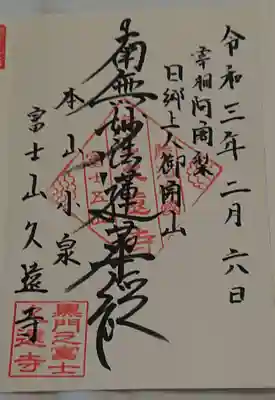 令和三年二月六日
宰相阿闍梨
日郷上人御開山
南無妙法蓮華経
本山小泉
富士山久遠寺
久遠寺
黒門之富士
久遠寺